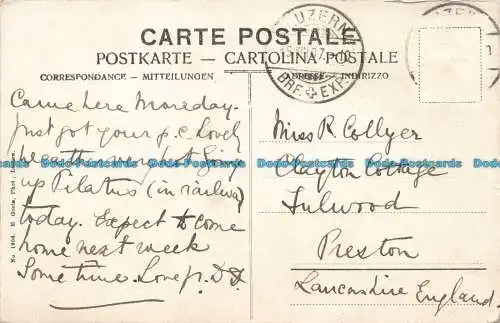 CARTE POSTALE
POSTKARTE — CARTOLINA POSTALE
CORRESPONDANCE - MITTEILUNGEN
ADRESSE - INDIRIZZO
LUZERN
BRF EXP.
Came here Moreday.
Just got your p.c. Lovely
weather now just going
up Pilatus (in railway)
today. Expect to come
home next week
Some time. Love fr. D.D.
Miss R. Collyer
Clayton Cottage
Fulwood
Preston
Lancashire England.
bcb-Postcards bcb-Postcards bcb-Postcards bcb-Postcards